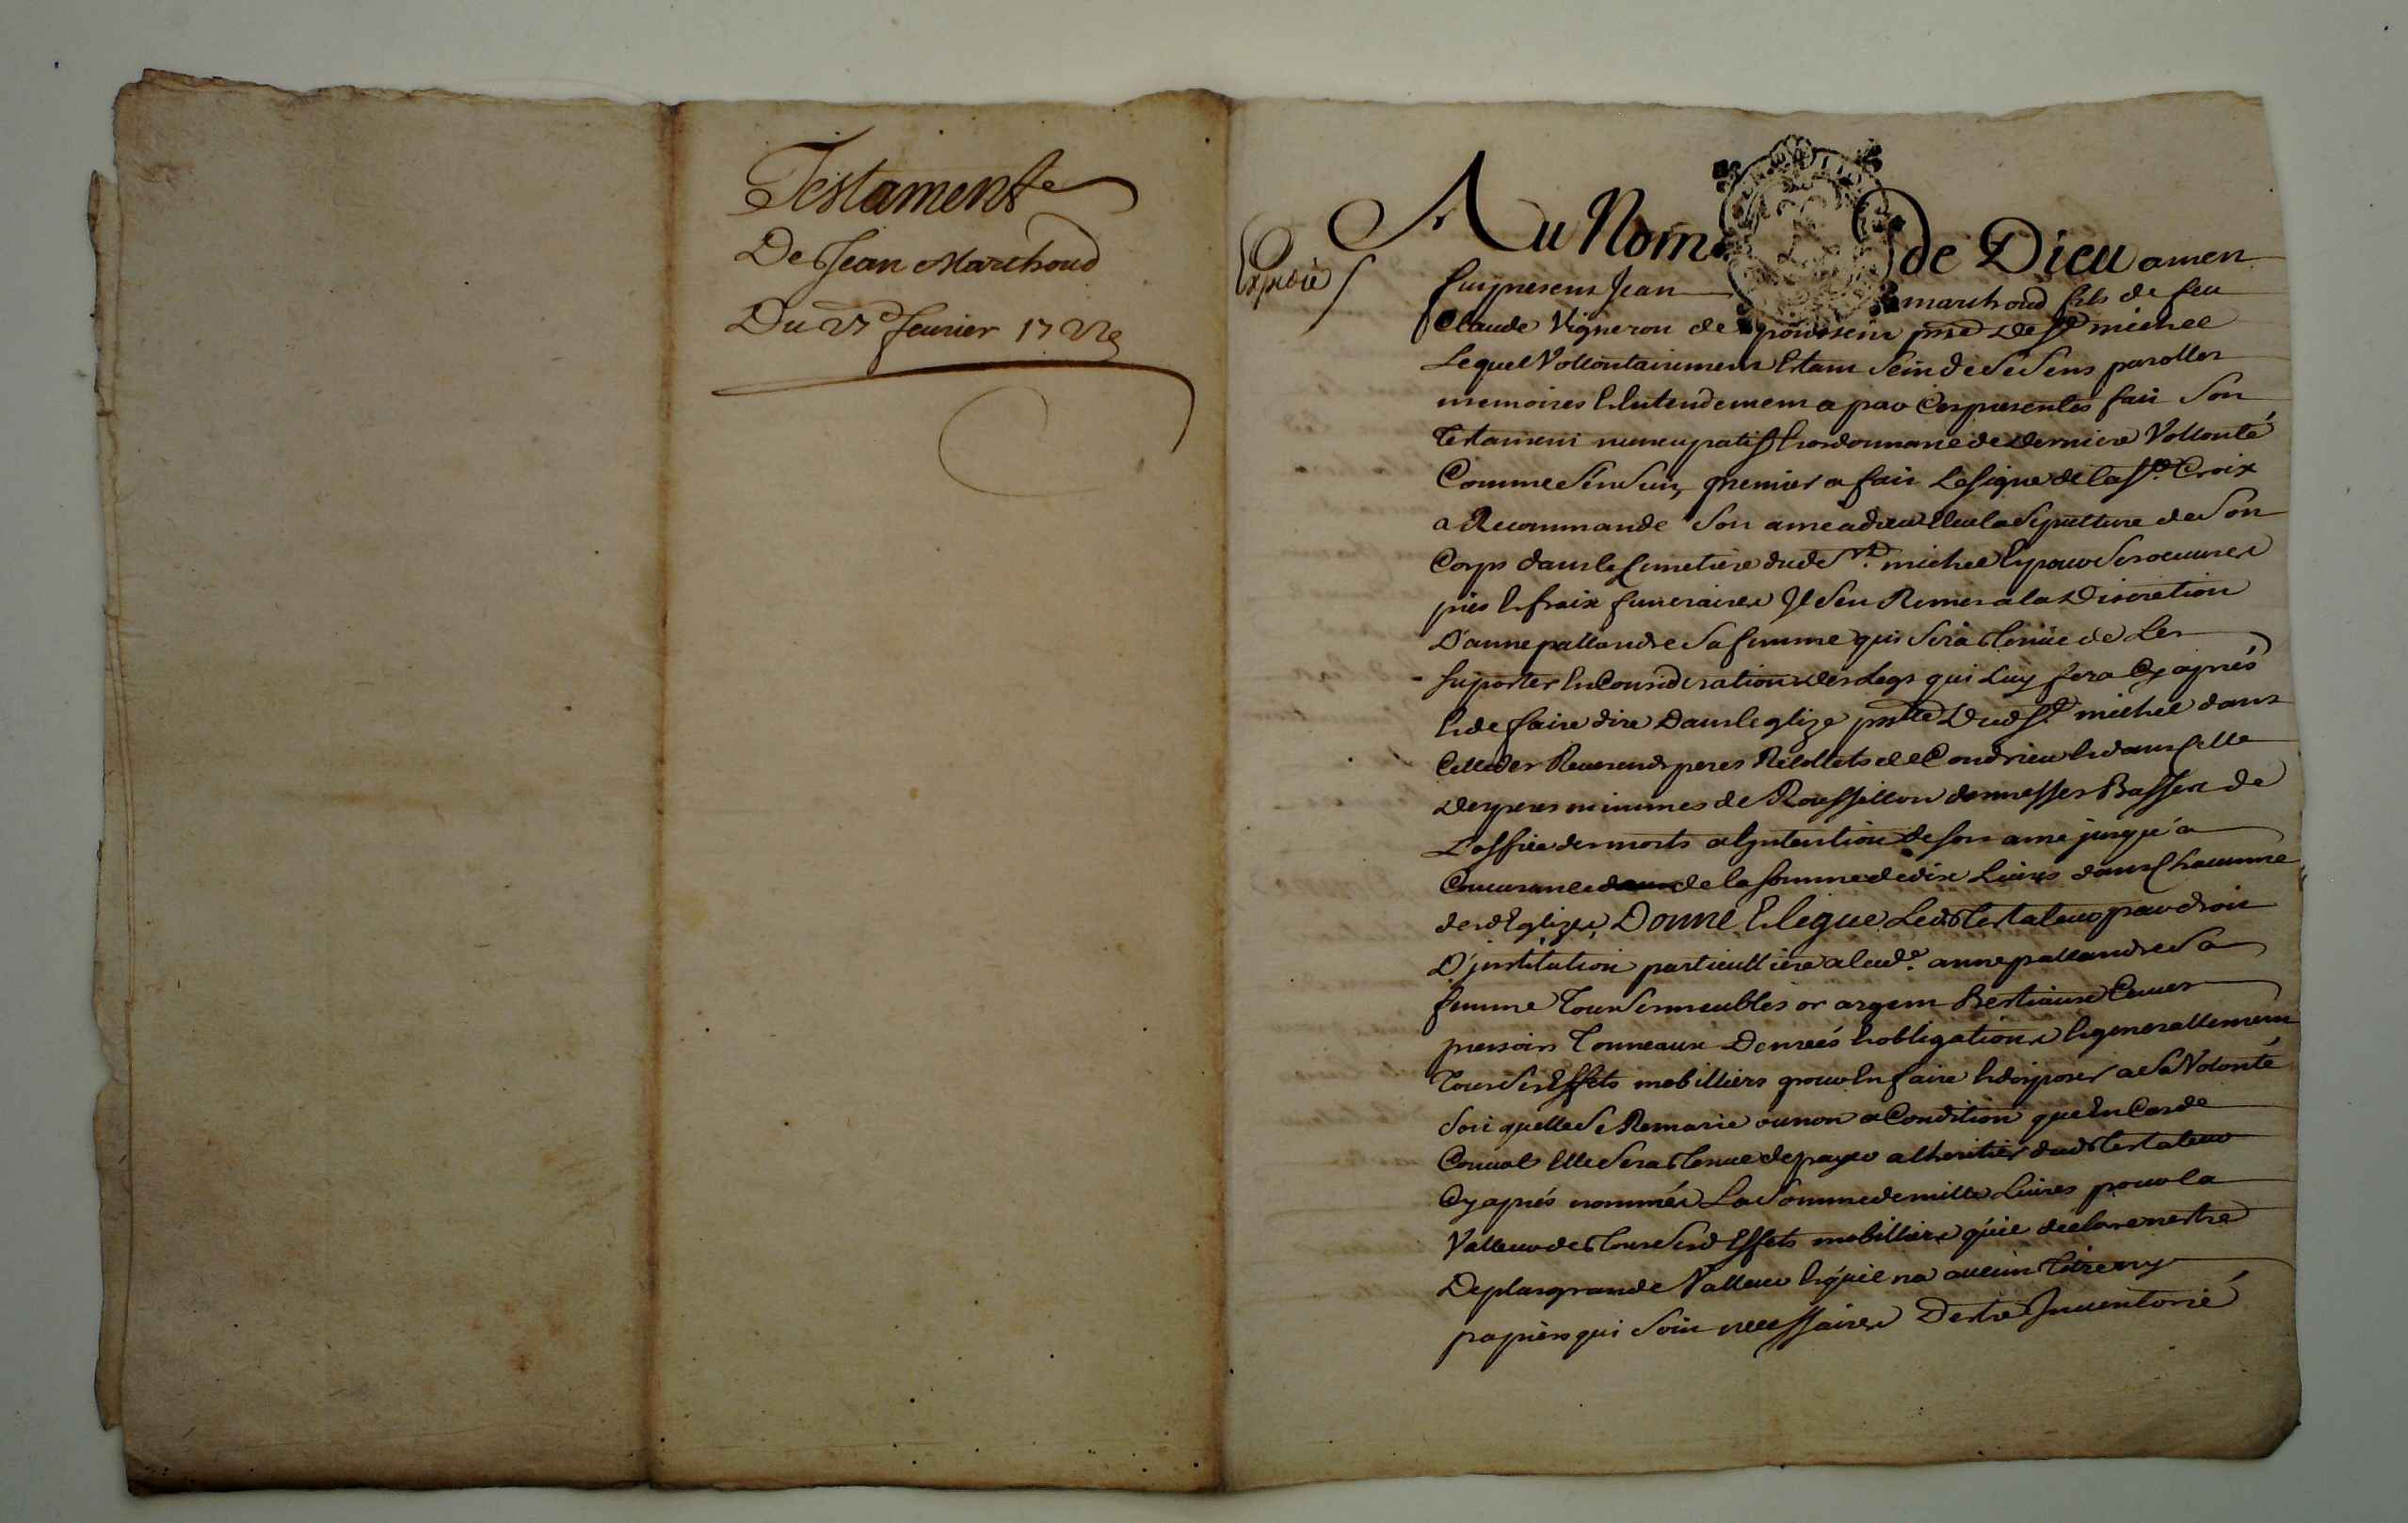 Testament
De Jean Marthoud
Du 27e feurier 1722
Expedié
Au Nom de Dieu amen
fut present Jean marthoud fils de feu
Claude Vigneron de poursein psse de St michel
Lequel Vollontairement Estant Sein de Se Sens parolles
memoires Et Entendement a par Ces presentes fait Son
Testament nuncupatif Et ordonnance de derniere Vollonté
Comme Sen Suit, premier a fait Le signe de la Ste Croix
a Recommande Son ame a dieu Elleu la Sepulture de Son
Corps dans le Cimetiere dud St michel Et pour Ses oeuures
pies Et fraix funeraires Il Sen Remet a la Discretion
D'anne pallandre Sa femme qui Sera tenüe de Les
suporter En Consideration des Legs qui Luy fera Cy aprés
Et de faire dire Dans leglize pslle Dud St michel dans
Celle des Reuerends peres Recollets de Condrieu Et dans Celle
Des peres minimes de Roussillon des messes Basses de
L'office des morts a lintention de son ame jusqu'a
Concurance de la somme de dix Liures dans Chacunne
desd Eglizes, Donne Et legue Led testateur par droit
D'institution particulliere a lad.e anne pallandre Sa
femme tous Ses meubles or argent Bestiaux Cuues
pressoirs tonneaux Denreés Et obligations Et generallement
tous Ses Effets mobilliers pour En faire Et disposer a Sa Volonté
Soit quelle Se Remarie ou non a Condition que En Cas de
Conuol Elle Sera tenue de payer a lheritier dud testateur
Cy aprés nommés La Somme de mille Liures pour la
Valleur de tous Sesd Effets mobilliers quil declare nestre
De plus grande Valleur Et quil na aucun titre ny
papiers qui Soit necessaires Destre Inuentorié